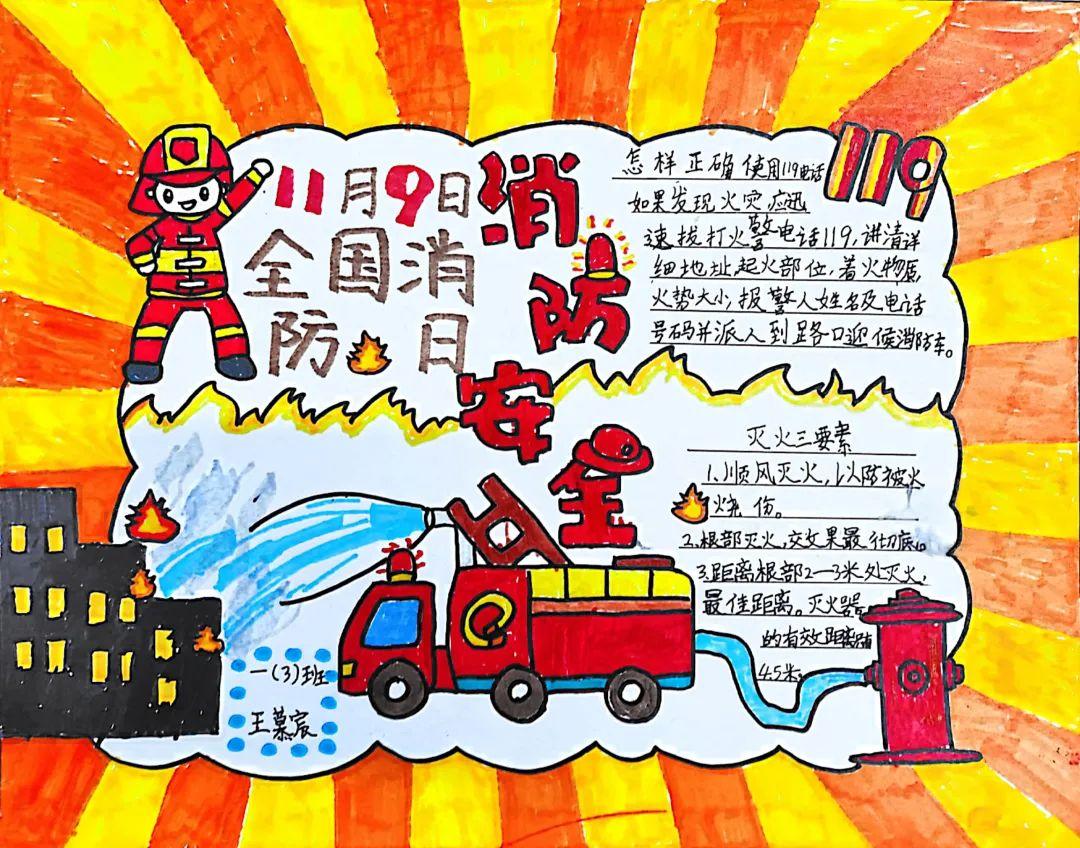 11月9日
全国消
防日
消
防
安
全
119
怎样正确使用119电话
如果发现火灾,应迅
速拔打火警电话119,讲清详
细地址,起火部位,着火物质,
火势大小,报警人姓名及电话
号码并派人到路口迎候消防车。
灭火三要素
1、顺风灭火,以防被火
烧伤。
2、根部灭火,效果最彻底。
3、距离根部2—3米处灭火,
最佳距离。灭火器
的有效距离
4.5米。
一(3)班
王慕宸